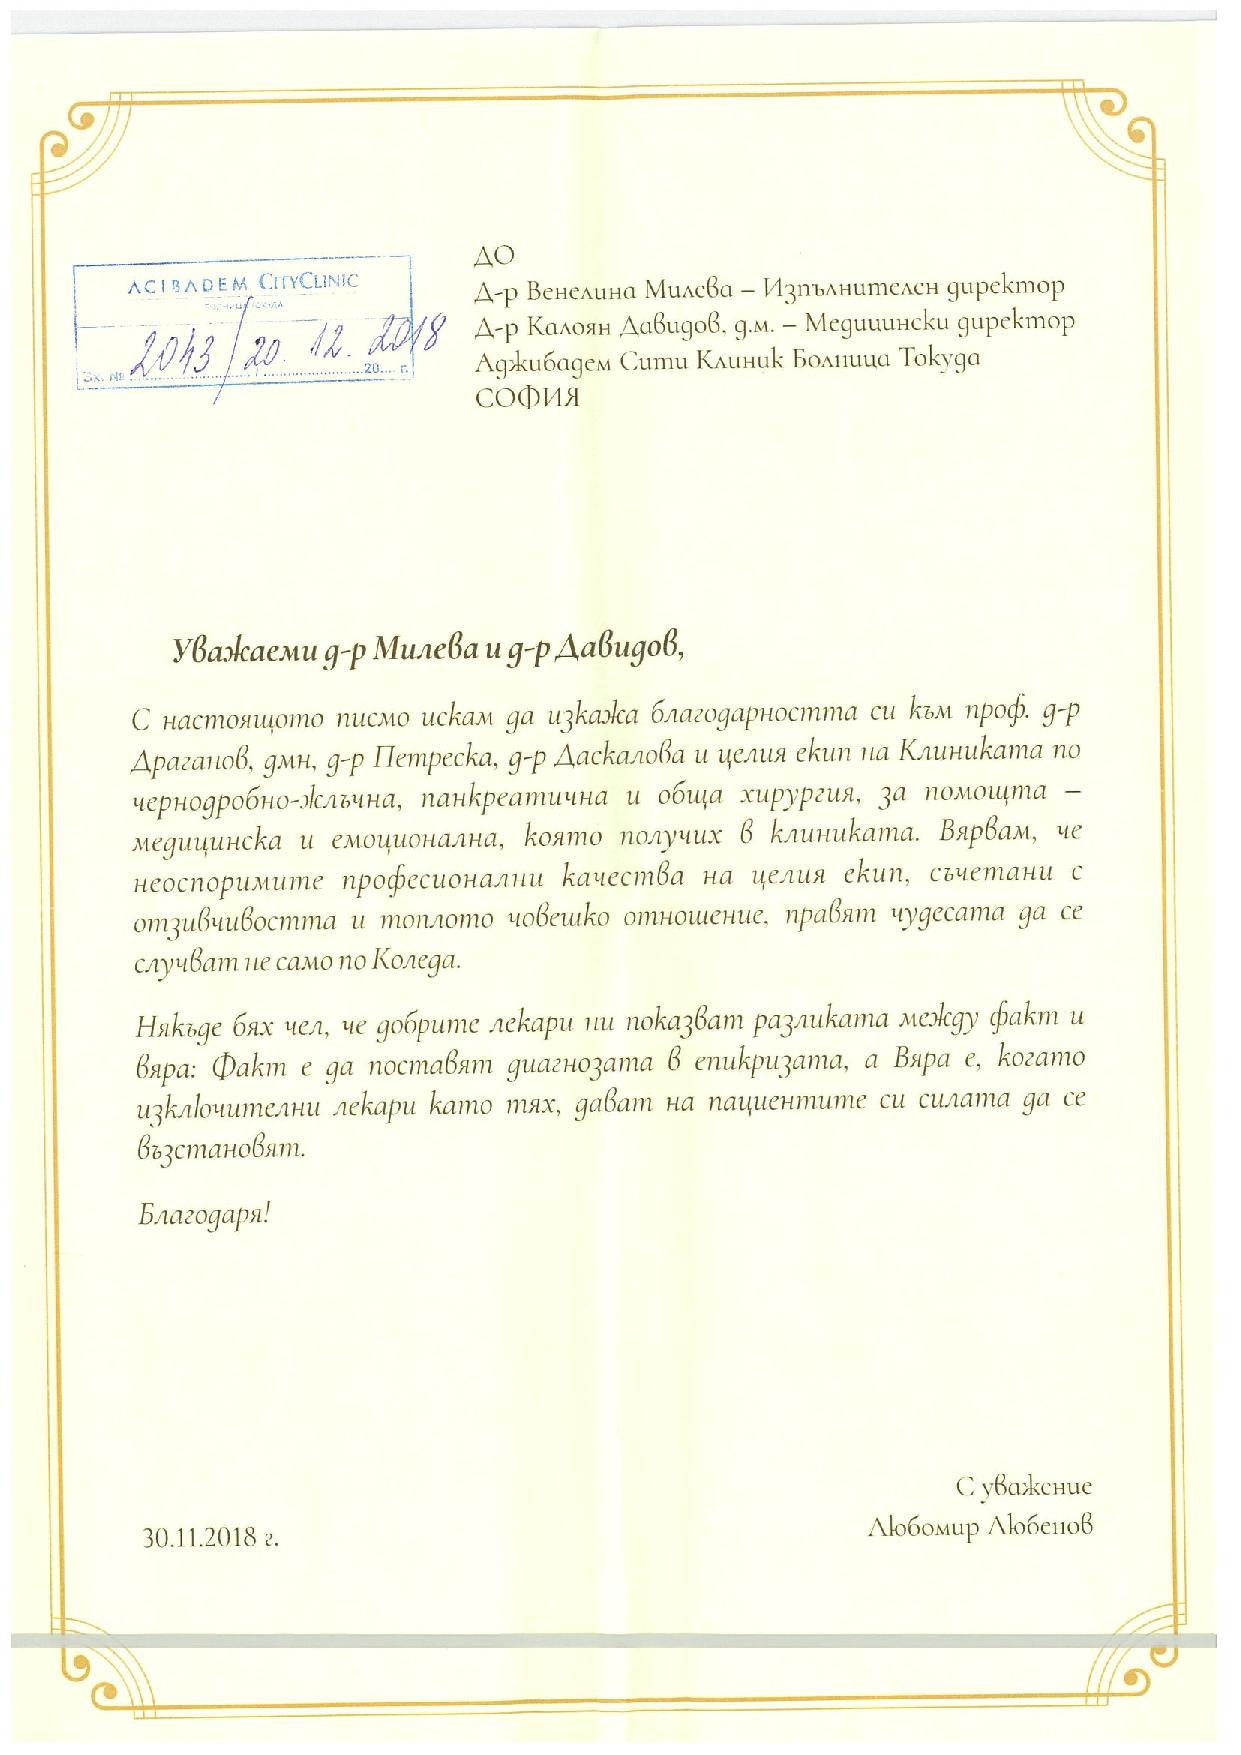 ACIBADEM CITYCLINIC
БОЛНИЦА ТОКУДА
Вх. № 2043/20.12.2018
20.... г.
ДО
Д-р Венелина Милева – Изпълнителен директор
Д-р Калоян Давидов, д.м. – Медицински директор
Аджибадем Сити Клиник Болница Токуда
СОФИЯ
Уважаеми д-р Милева и д-р Давидов,
С настоящото писмо искам да изкажа благодарността си към проф. д-р
Драганов, дмн, д-р Петреска, д-р Даскалова и целия екип на Клиниката по
чернодробно-жлъчна, панкреатична и обща хирургия, за помощта –
медицинска и емоционална, която получих в клиниката. Вярвам, че
неоспоримите професионални качества на целия екип, съчетани с
отзивчивостта и топлото човешко отношение, правят чудесата да се
случват не само по Коледа.
Някъде бях чел, че добрите лекари ни показват разликата между факт и
вяра: Факт е да поставят диагнозата в епикризата, а Вяра е, когато
изключителни лекари като тях, дават на пациентите си силата да се
възстановят.
Благодаря!
С уважение
Любомир Любенов
30.11.2018 г.